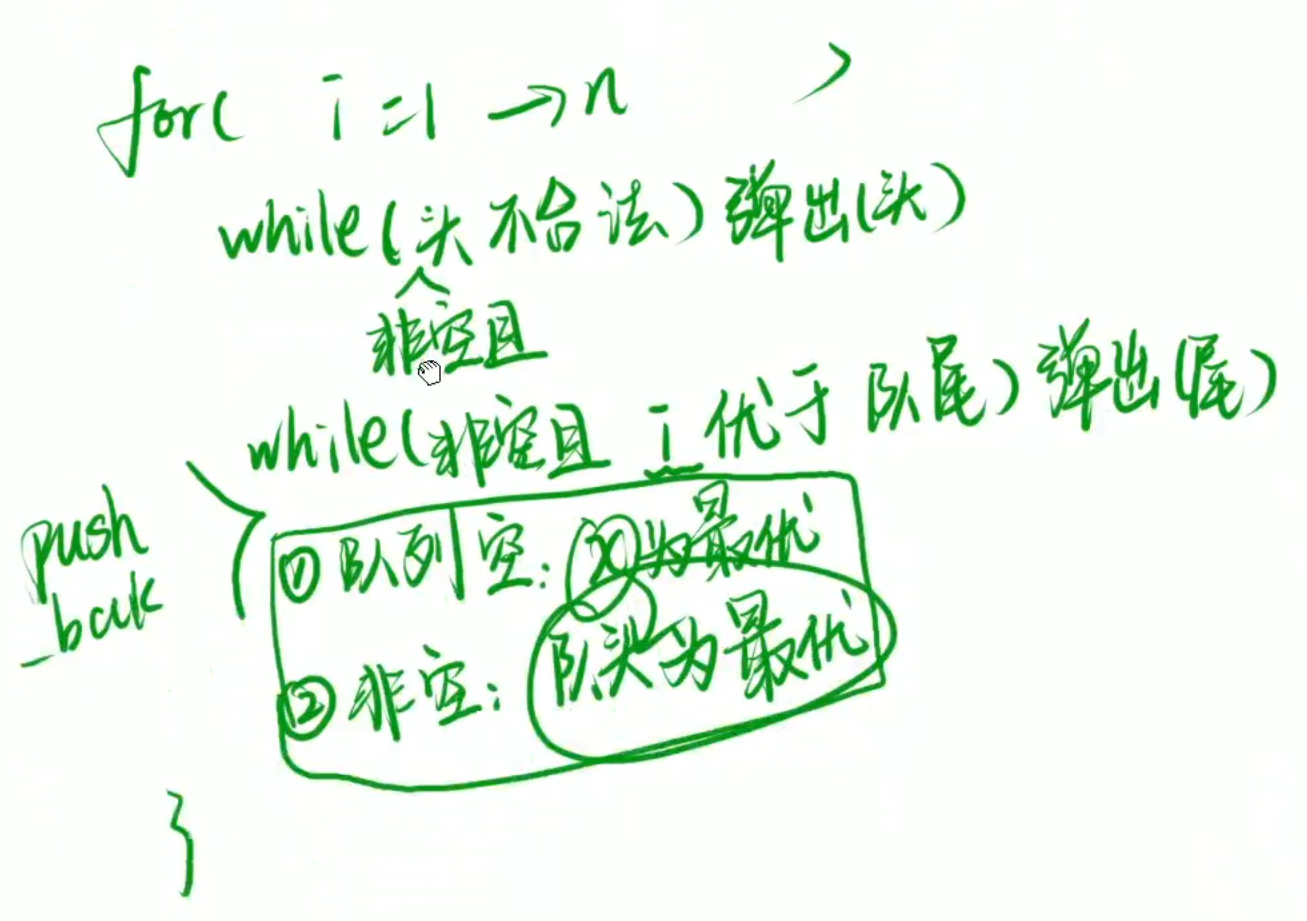 for( i=1 →n )
while(头不合法)弹出(头)
非空且
while(非空且 i 优于队尾)弹出(尾)
push
_back
① 队列空: 为最优
② 非空: 队头为最优
}